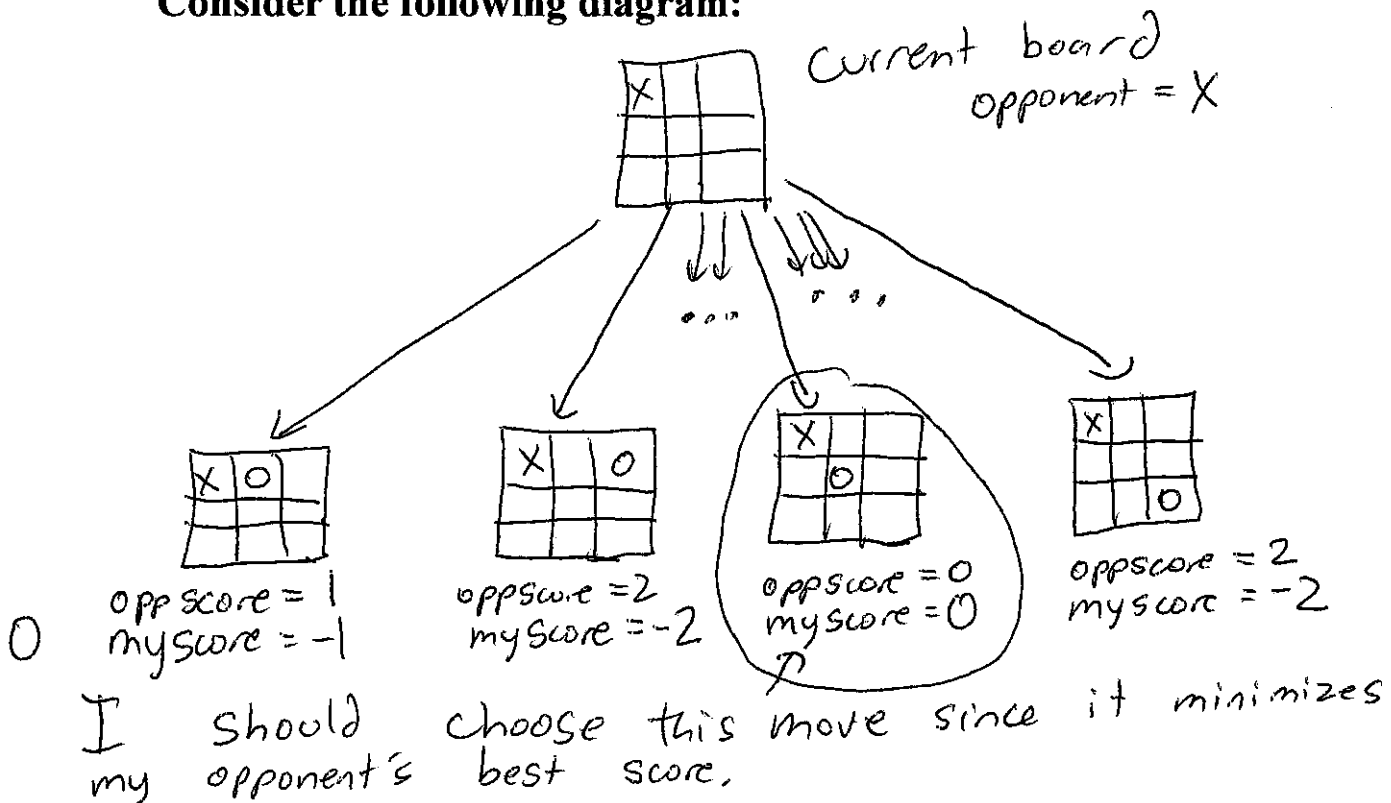 Consider the following diagram:
Current board
opponent = X
X
...
...
X O
X O
X
O
X
O
opp score = 1
O myscore = -1
oppscore = 2
myscore = -2
oppscore = 0
myscore = 0
oppscore = 2
myscore = -2
I should choose this move since it minimizes
my opponent's best score.